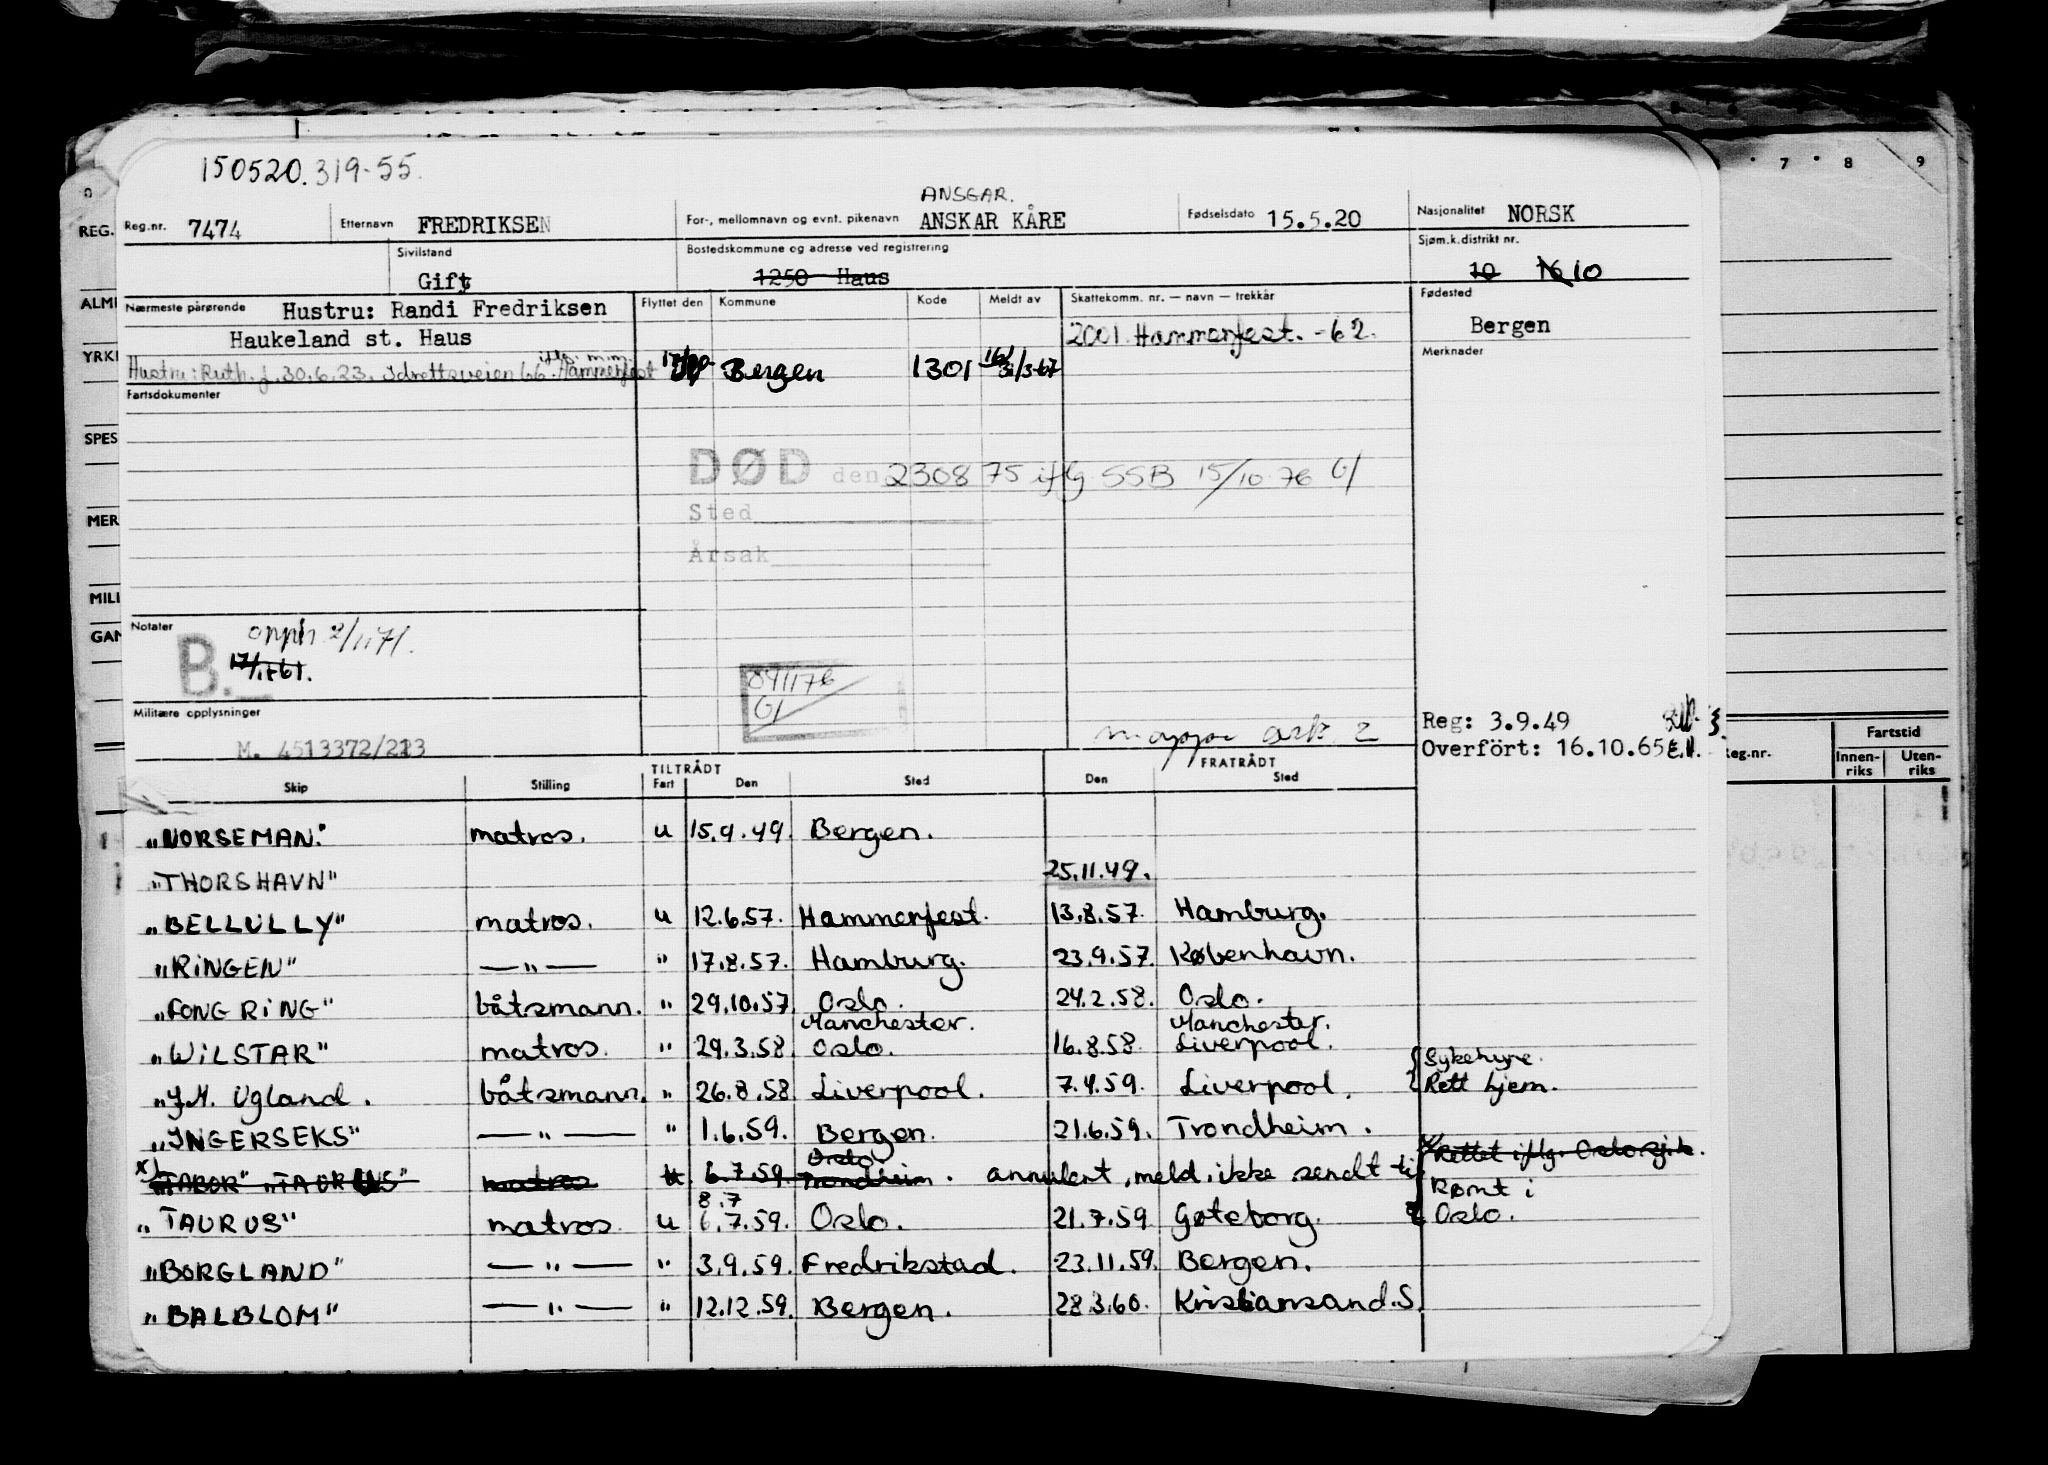 150520.319-55.
ANSGAR.
Reg.nr. 7474 Etternavn FREDRIKSEN For-, mellomnavn og evnt. pikenavn ANSKAR KÅRE Fødselsdato 15.5.20 Nasjonalitet NORSK
Sivilstand Gift Bostedskommune og adresse ved registrering 1250 Haus Sjøm.k.distrikt nr. 10 16 10
Nærmeste pårørende Hustru: Randi Fredriksen Flyttet den Kommune Kode Meldt av Skattekomm. nr. — navn — trekkår Fødested
Haukeland st. Haus 2001 Hammerfest. -62. Bergen
iflg. m.m.
Hustru: Ruth f. 30.6.23. Idrettsveien 66. Hammerfest Bergen 1301 31/3-67 Merknader
Fartsdokumenter
DØD den 230875 iflg SSB 15/10-76
Sted
Årsak
Notater opph. 2/11 71.
B. 17/1-61.
Militære opplysninger
M. 4513372/213
mappe ark 2
Reg: 3.9.49
Overfört: 16.10.65
Skip Stilling TILTRÅDT Fart Den Sted FRATRÅDT Den Sted
"NORSEMAN" matros. u 15.9.49. Bergen.
"THORSHAVN" 25.11.49.
"BELLULLY" matros. u 12.6.57. Hammerfest. 13.8.57. Hamburg.
"RINGEN" —"— " 17.8.57. Hamburg. 23.9.57. København.
"FONG RING" båtsmann. " 29.10.57 Oslo. 24.2.58. Oslo.
Manchester. Manchester.
"WILSTAR" matros. " 29.3.58 Oslo. 16.8.58 Liverpool. Sykehyre.
"J.M. Ugland. båtsmann. " 26.8.58 Liverpool. 7.4.59. Liverpool. Rett hjem.
"INGERSEKS" —"— " 1.6.59. Bergen. 21.6.59. Trondheim.
Oslo. Rettet iflg. Oslo
x) "TABOR" "TAURUS" matros u 6.7.59 Trondheim. annulert, meld. ikke sendt til Rømt i
8.7
"TAURUS" matros u 6.7.59. Oslo. 21.7.59 Gøteborg. Oslo.
"BORGLAND" —"— " 3.9.59. Fredrikstad. 23.11.59. Bergen.
"BALBLOM" —"— " 12.12.59. Bergen. 28.3.60. Kristiansand.S.
7 8 9
REG.
ALMI
YRKI
SPES
MER
MILI
GAN
Reg.nr. Fartstid
Innen-riks Uten-riks